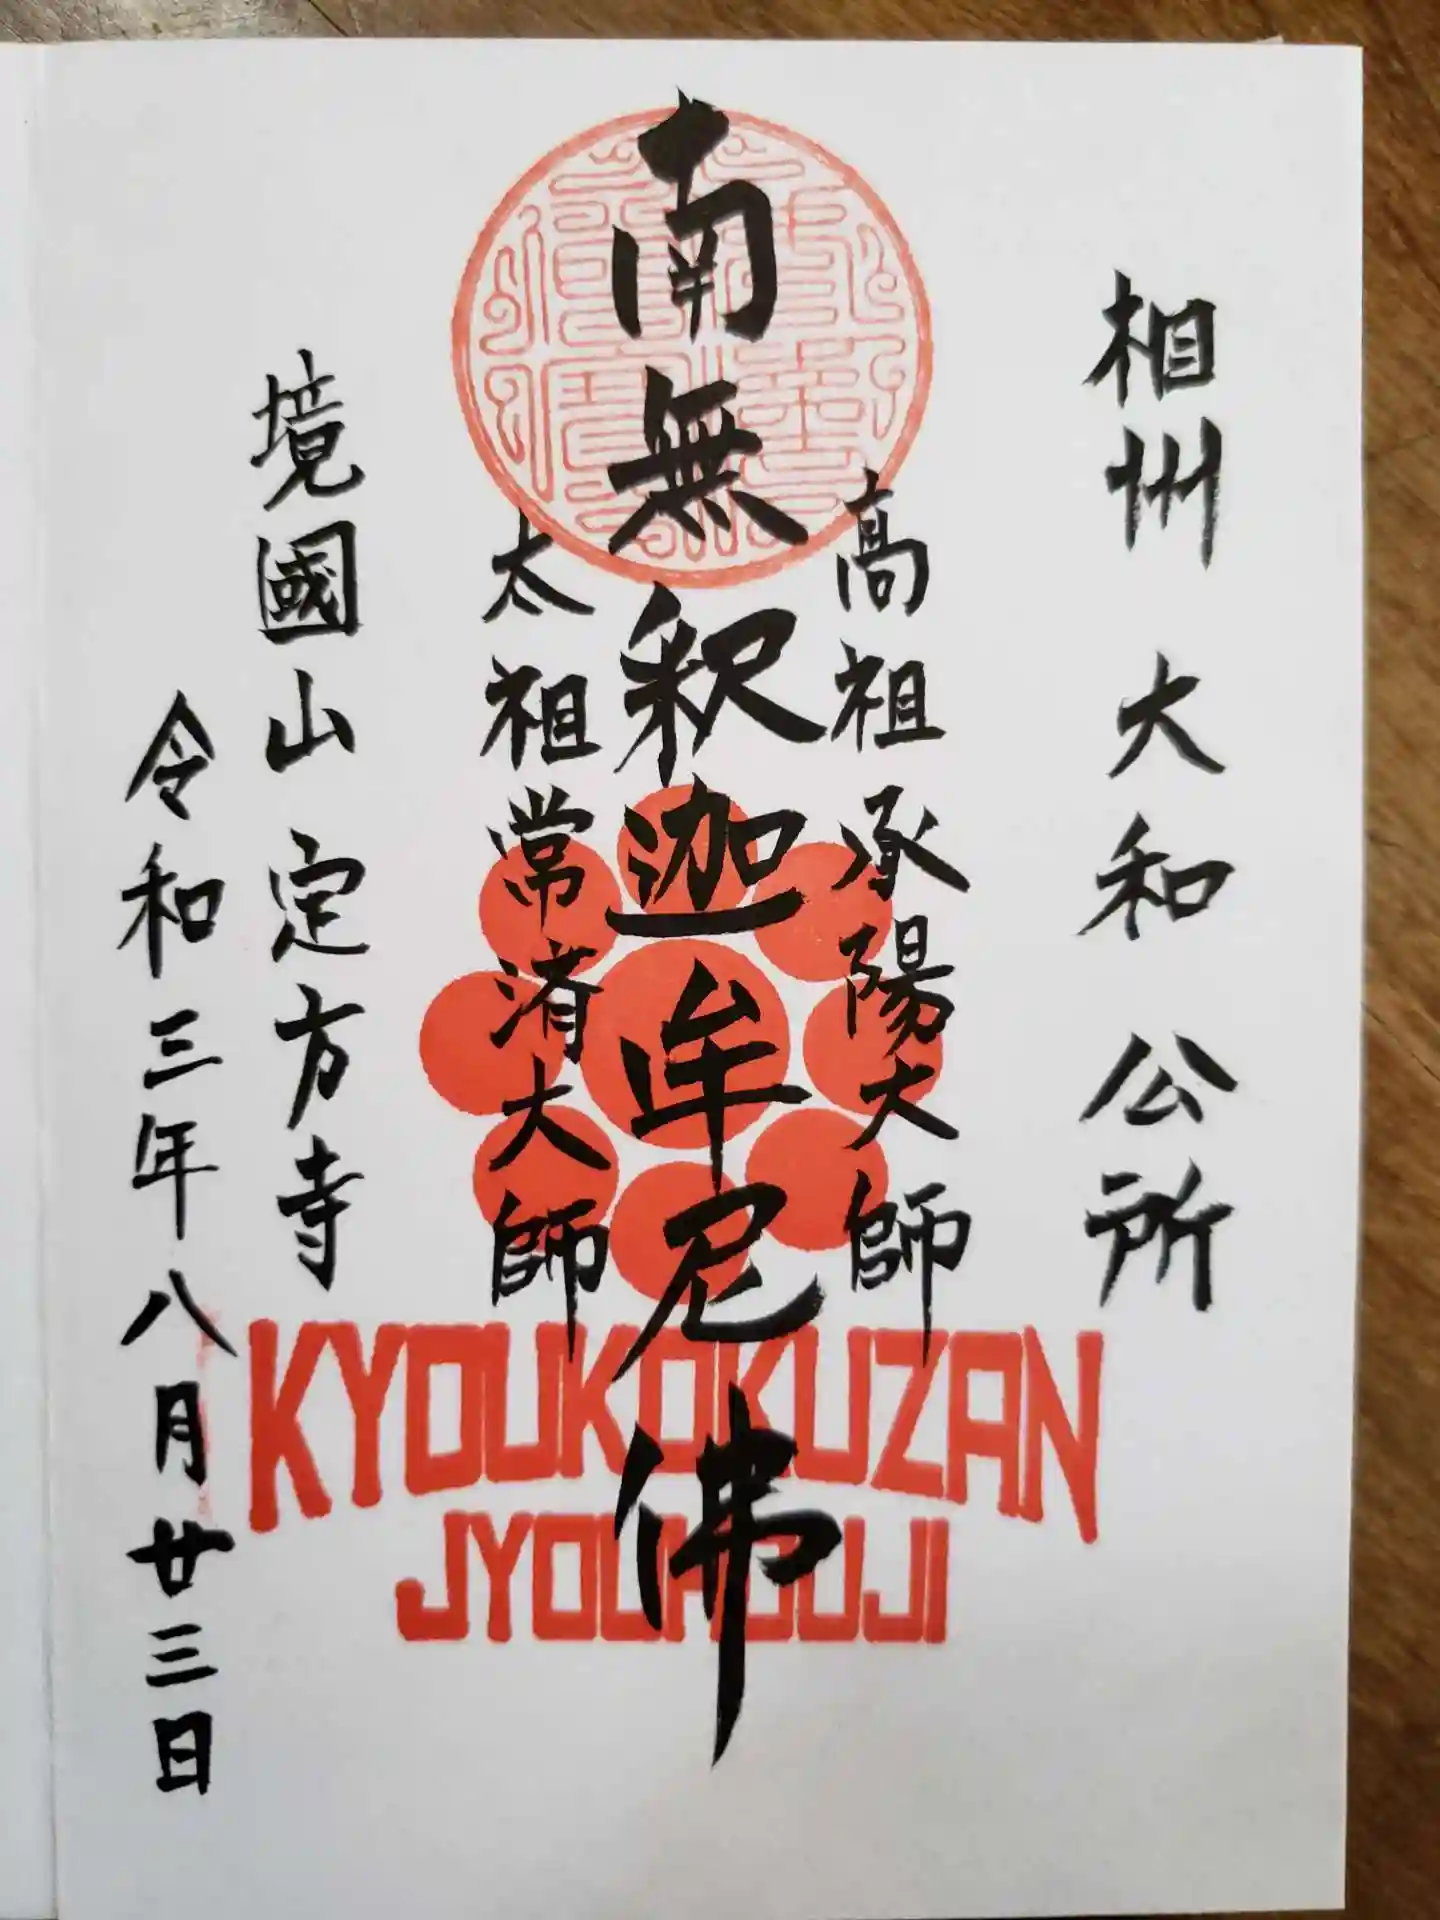 相州 大和 公所
高祖承陽大師
南無釈迦牟尼佛
太祖常済大師
境國山定方寺
令和三年八月廿三日
KYOUKOKUZAN
JYOUHOUJI